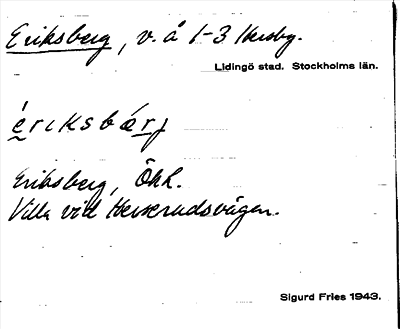 Eriksberg, v. å 1-3 Hersby.
Lidingö stad. Stockholms län.
èrıksbærj
Eriksberg, Ökk.
Villa vid Herserudsvägen.
Sigurd Fries 1943.